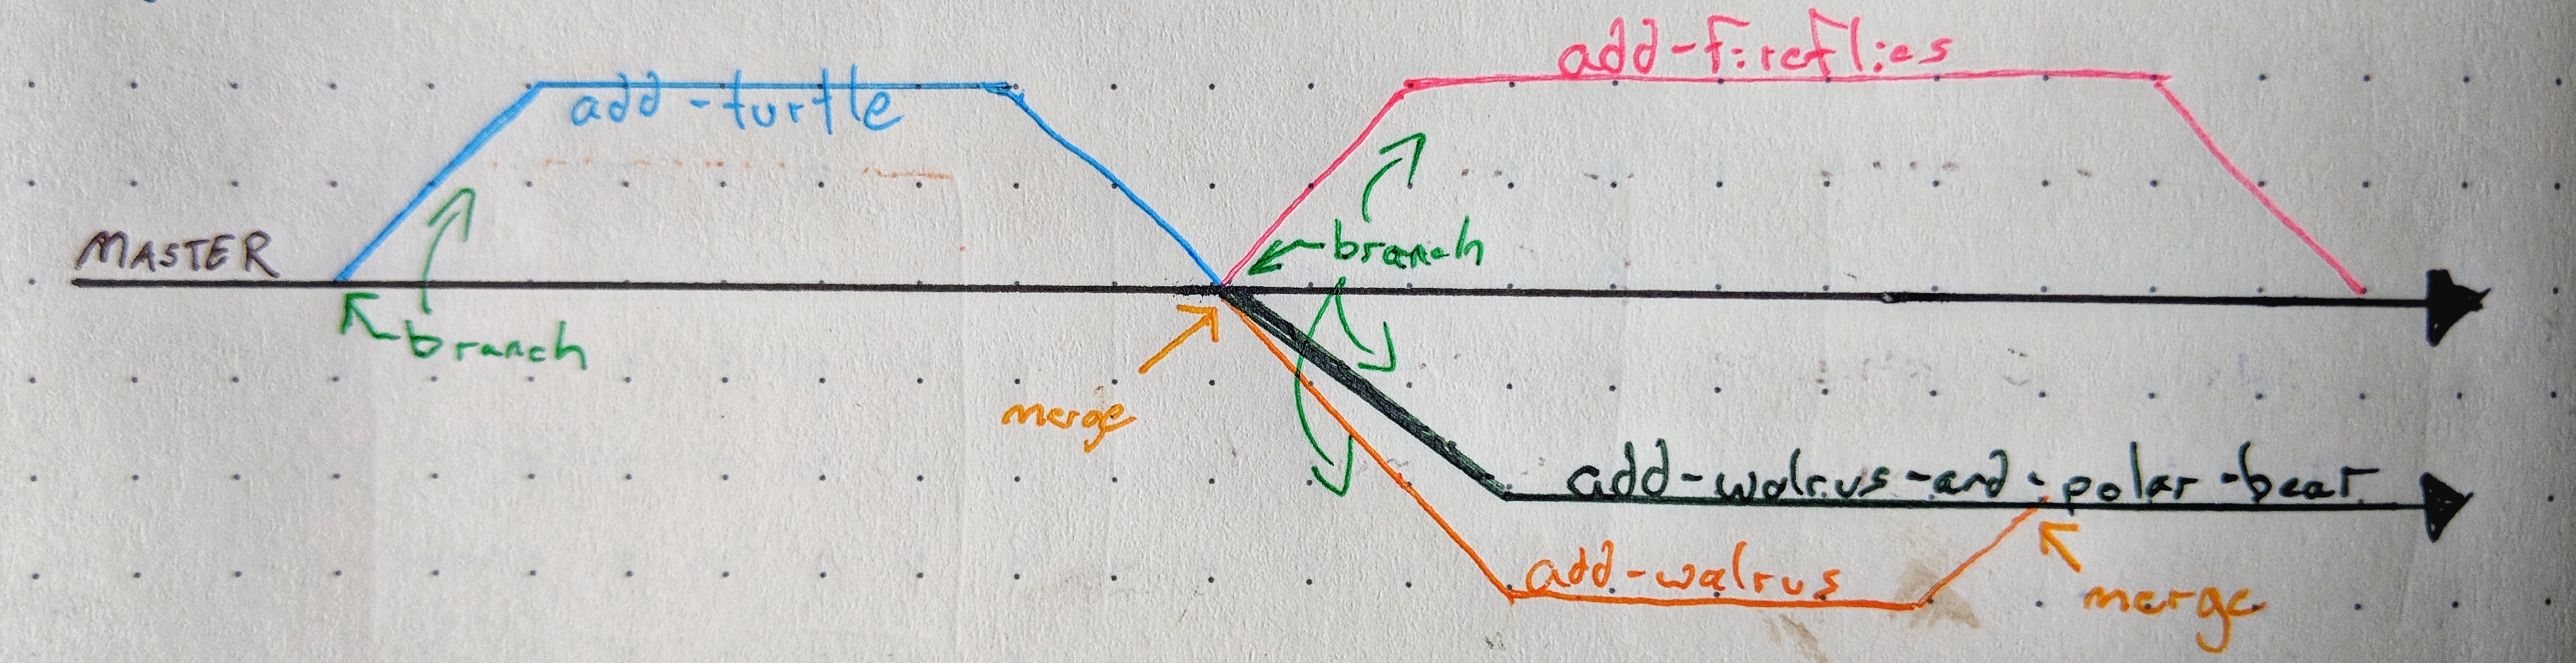 add-fireflies
add-turtle
MASTER
branch
branch
merge
add-walrus-and-polar-bear
add-walrus
merge